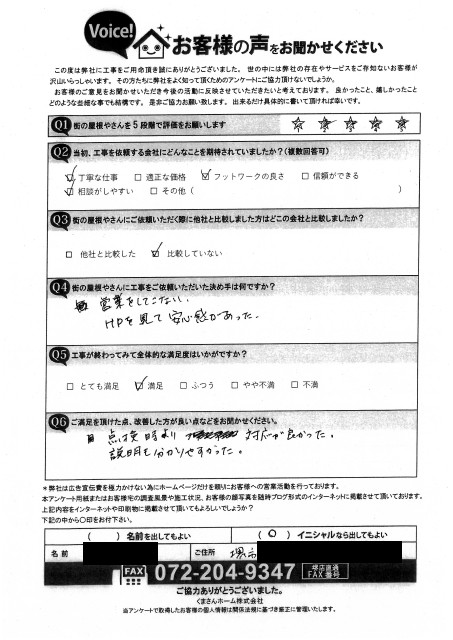 Voice!
お客様の声をお聞かせください
この度は弊社に工事をご用命頂き誠にありがとうございました。世の中には弊社の存在やサービスをご存知ないお客様が
沢山いらっしゃいます。その方たちに弊社をよく知って頂くためのアンケートにご協力頂けないでしょうか。
お客様のご意見をお聞かせいただき今後の活動に反映させていただきたいと考えております。良かったこと、嬉しかったこと
どのような些細な事でも結構です。是非ご協力お願い致します。出来るだけ具体的に書いて頂ければ幸いです。
Q1 街の屋根やさんを5段階で評価をお願いします ☆ ☆ ☆ ☆ ☆
Q2 当初、工事を依頼する会社にどんなことを期待されていましたか?(複数回答可)
☑ 丁寧な仕事 □ 適正な価格 ☑ フットワークの良さ □ 信頼ができる
☑ 相談がしやすい □ その他( )
Q3 街の屋根やさんにご依頼いただく際に他社と比較しました方はどこの会社と比較しましたか?
□ 他社と比較した ☑ 比較していない
Q4 街の屋根やさんに工事をご依頼いただいた決め手は何ですか?
営業をしてこない。
HPを見て安心感があった。
Q5 工事が終わってみて全体的な満足度はいかがですか?
□ とても満足 ☑ 満足 □ ふつう □ やや不満 □ 不満
Q6 ご満足を頂けた点、改善した方が良い点などをお聞かせください。
点検時より 対応が良かった。
説明も分かりやすかった。
*弊社は広告宣伝費を極力かけない為にホームページだけを頼りにお客様への営業活動を行っております。
本アンケート用紙またはお客様宅の調査風景や施工状況、お客様の顔写真を随時ブログ形式のインターネットに掲載させて頂いております。
上記内容をインターネットや印刷物に掲載させて頂いてもよろしいでしょうか?
下記の中から〇印をお付下さい。
( )名前を出してもよい (〇)イニシャルなら出してもよい
名前 ご住所 堺市
FAX 072-204-9347 堺店直通 FAX番号
ご協力ありがとうございました。
くまさんホーム株式会社
当アンケートで取得したお客様の個人情報は関係法規に基づき厳正に管理いたします。